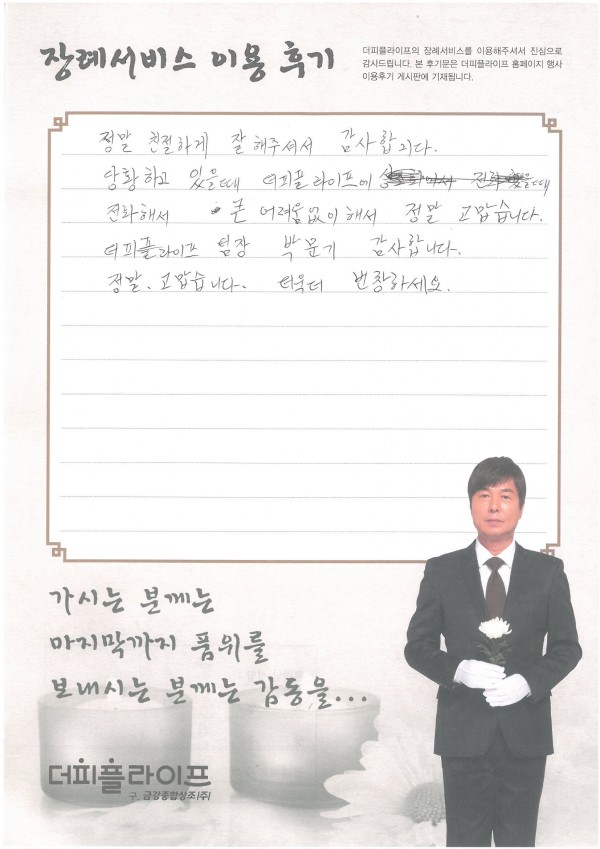 장례서비스 이용 후기
더피플라이프의 장례서비스를 이용해주셔서 진심으로
감사드립니다. 본 후기문은 더피플라이프 홈페이지 행사
이용후기 게시판에 기재됩니다.
정말 친절하게 잘 해주셔서 감사합니다.
당황하고 있을때 더피플라이프에 을때
전화해서 큰 어려움없이 해서 정말 고맙습니다.
더피플라이프 팀장 박문기 감사합니다.
정말. 고맙습니다. 더욱더 번창하세요.
가시는 분께는
마지막까지 품위를
보내시는 분께는 감동을...
더피플라이프
구. 금강종합상조(주)